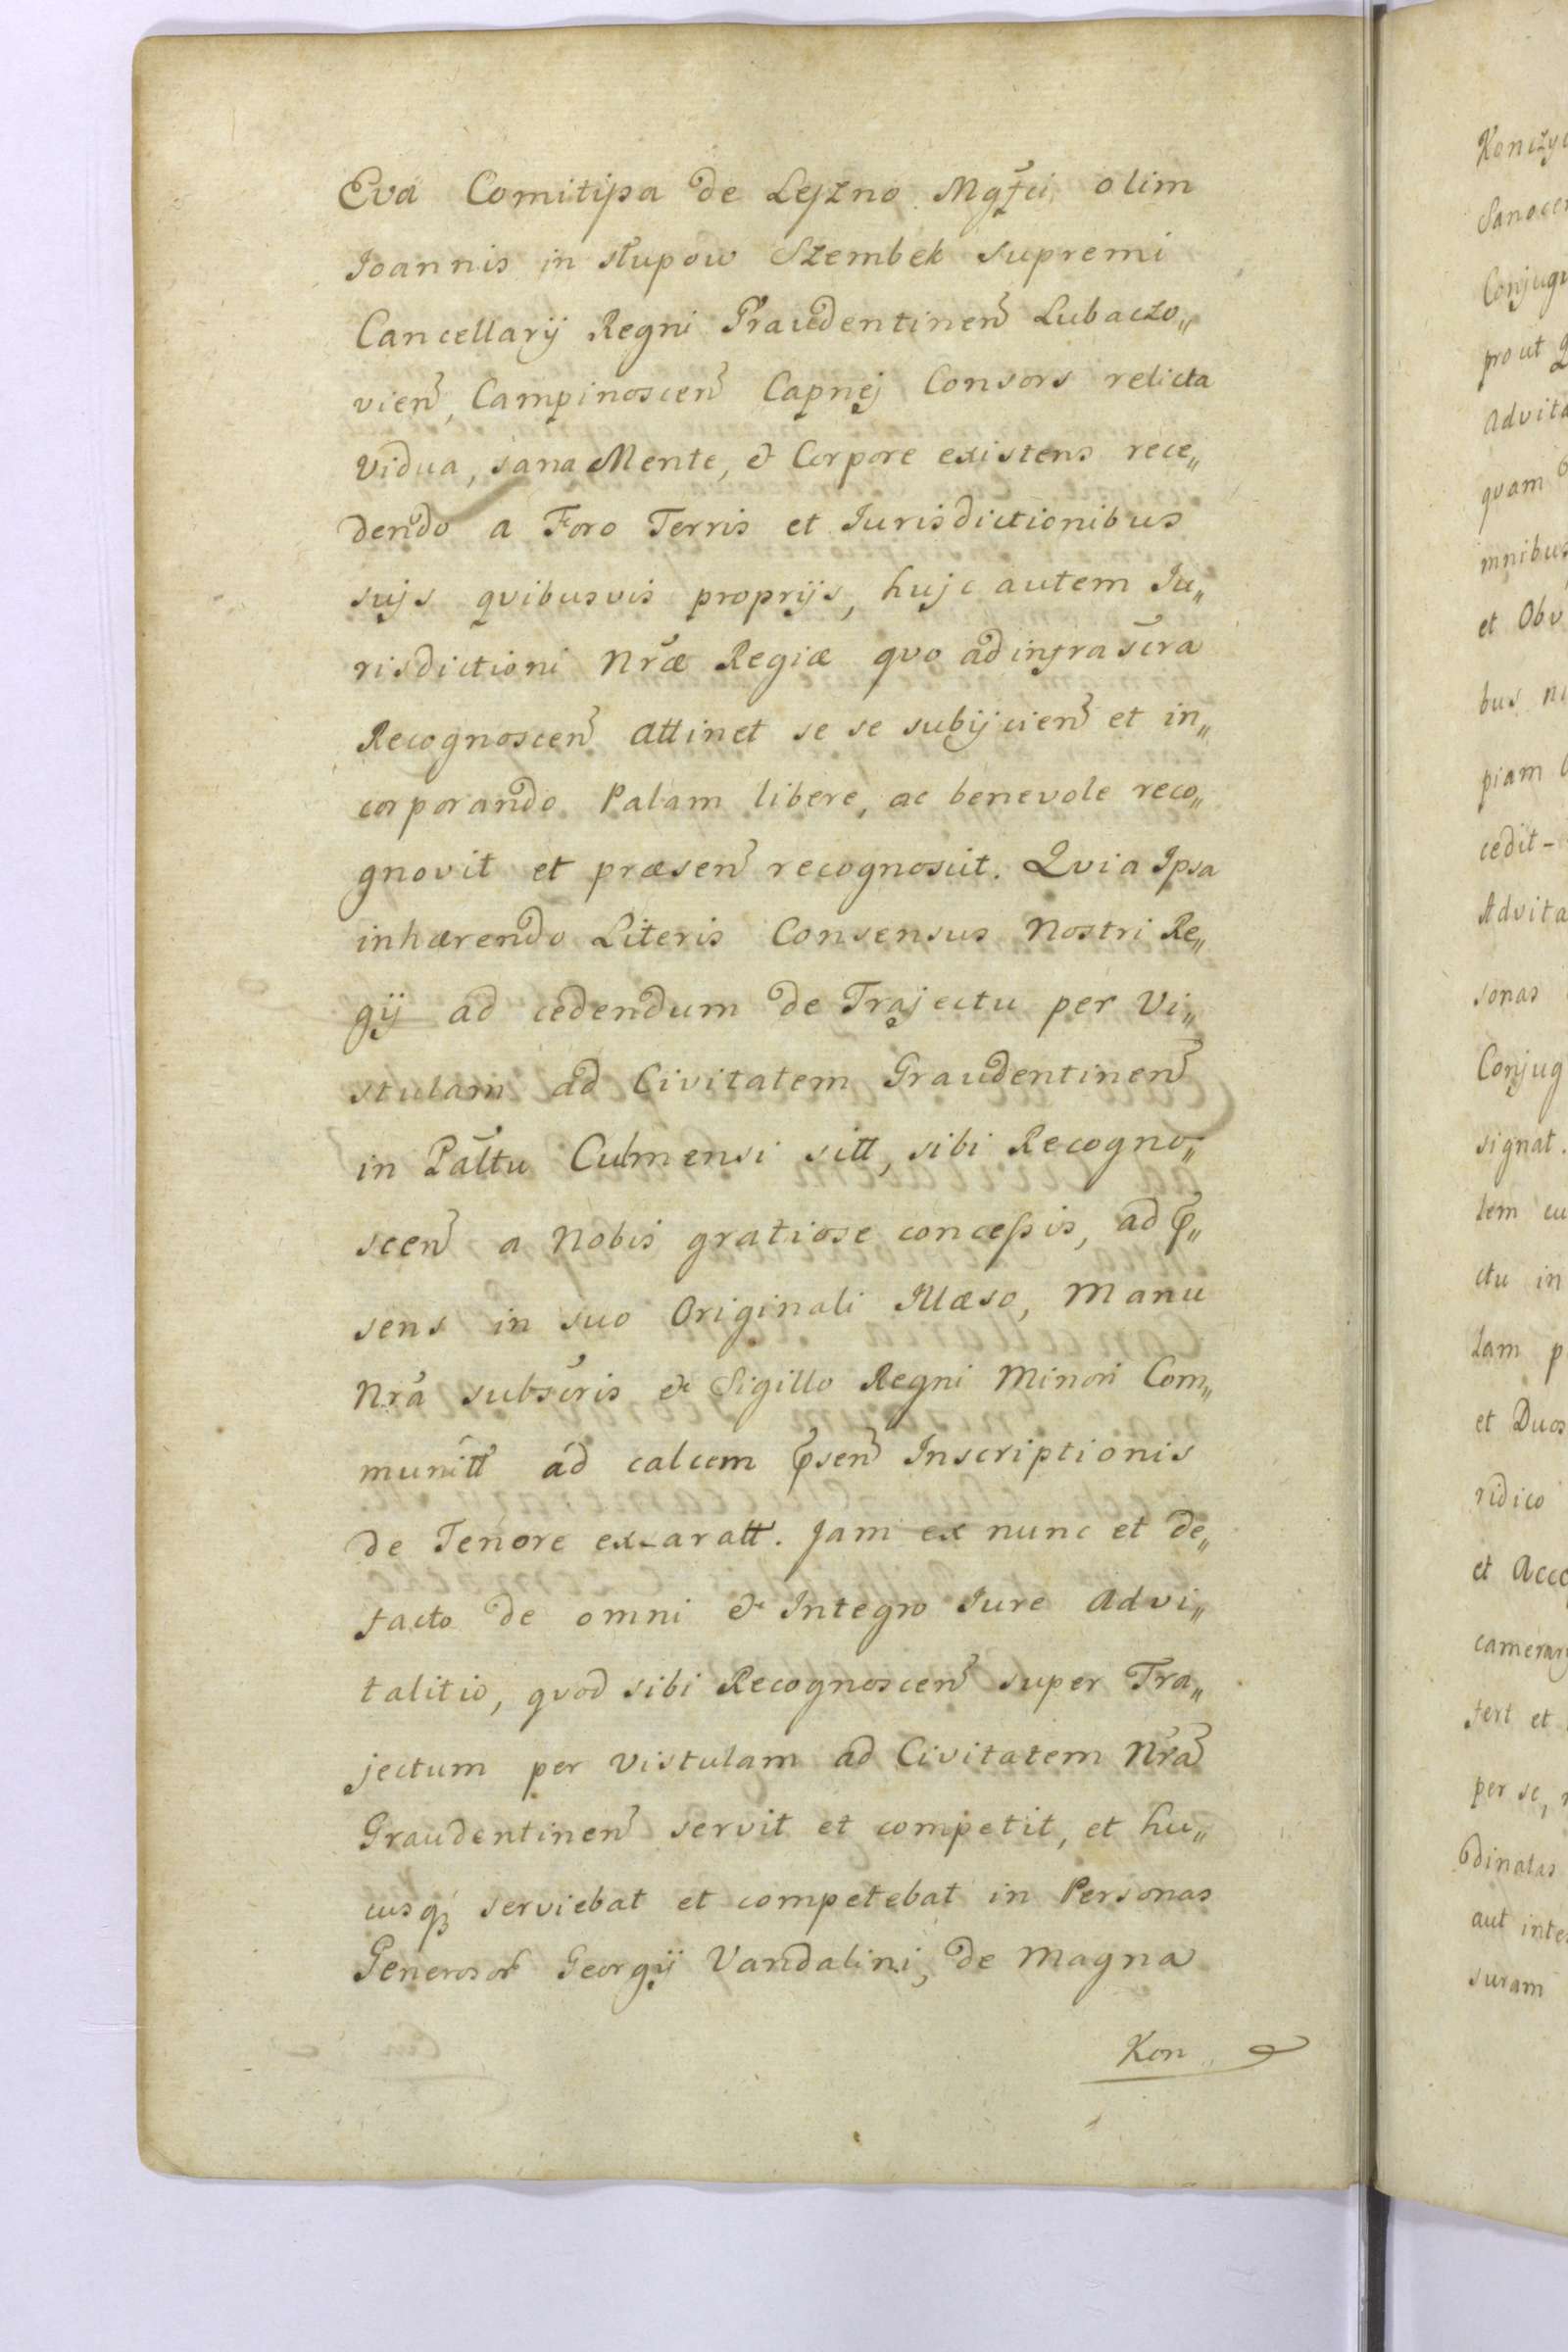 Eva Comitissa de Leszno Mgfci olim
Joannis in słupow Szembek Supremi
Cancellarij Regni Graudentinen Lubaczo„
vien, Campinoscen Capnej Consors relicta
Vidua, sana Mente, & Corpore existens rece„
dendo a Foro Terris et Jurisdictionibus
sujs qvibusvis proprijs, hujc autem Ju„
risdictioni Nræ Regiæ qvo ad infrascra
Recognoscen attinet se se subijcien et in„
corporando Palam libere, ac benevole reco„
gnovit et præsen recognoscit. Qvia Ipsa
inhærendo Literis Consensus Nostri Re„
gij ad cedendum de Trajectu per Vi„
stulam ad Civitatem Graudentinen
in Palttu Culmensi sitt, sibi Recogno„
scen a Nobis gratiose concessis, ad p„
sens in suo Originali Illæso, Manu
Nra subscris & Sigillo Regni Minori Com„
munitt ad calcem psen Inscriptionis
de Tenore exaratt. Jam ex nunc et de„
facto de omni & Integro Jure Advi„
talitio, qvod sibi Recognoscen super Tra„
jectum per Vistulam ad Civitatem Nra
Graudentinen servit et competit, et hu„
cusq serviebat et competebat in Personas
Generosor Georgij Vandalini, de Magna
Kon
Konczyc
Sanocen
Conjug
prout
Advita
qvam
mnibus
et Obv
bus
piam
cedit
Advita
sonas
Conjug
signat.
tem cu
ctu in
tam p
et Duos
ridico
et Acce
camerar
fert et
per se,
dinatas
aut inte
suram